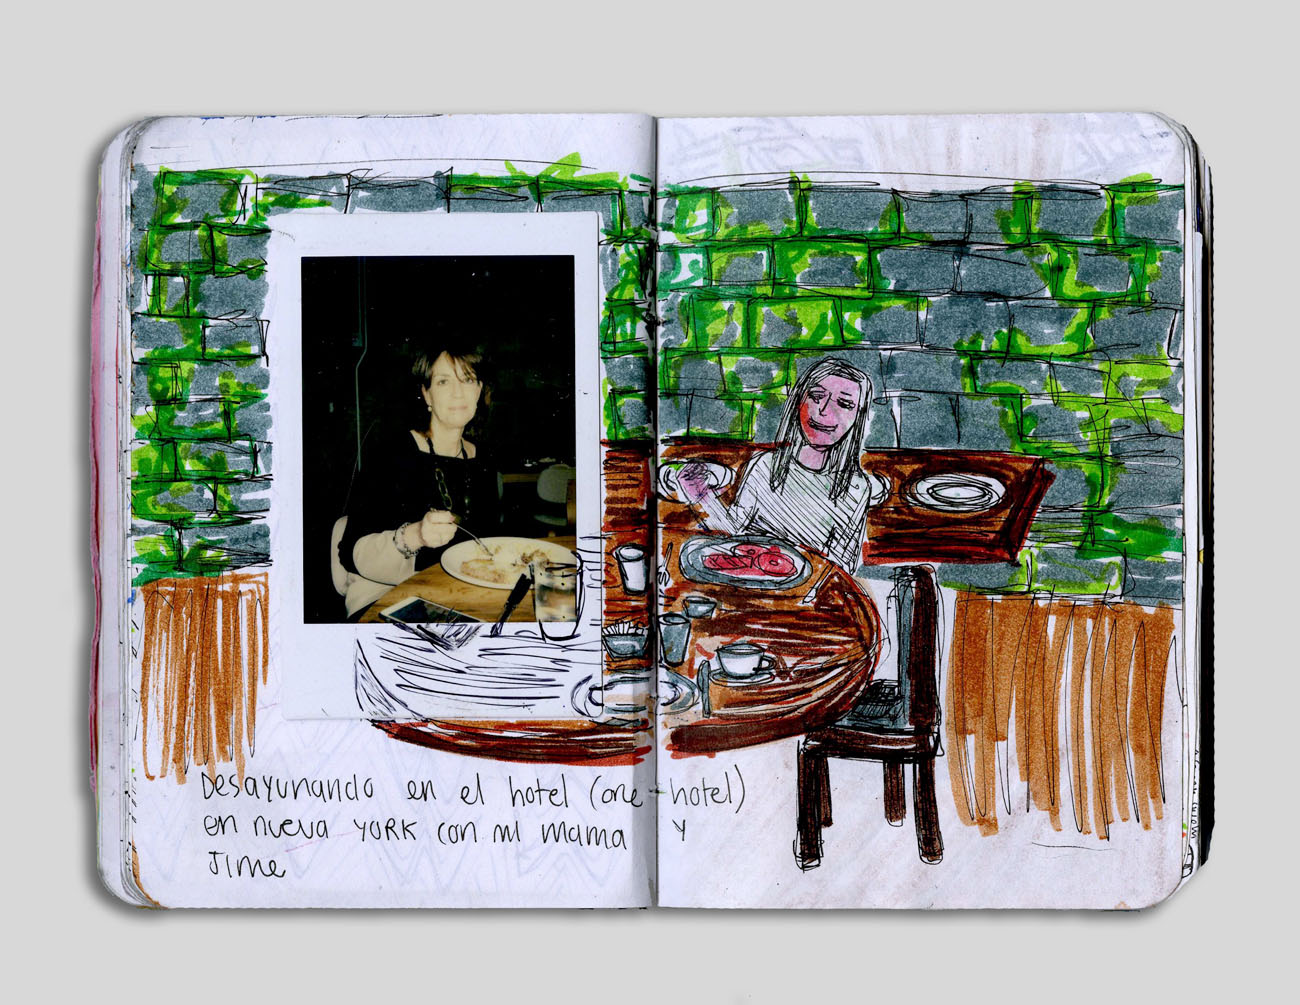 Desayunando en el hotel (one hotel)
en nueva YORK con mi mama y
Jime